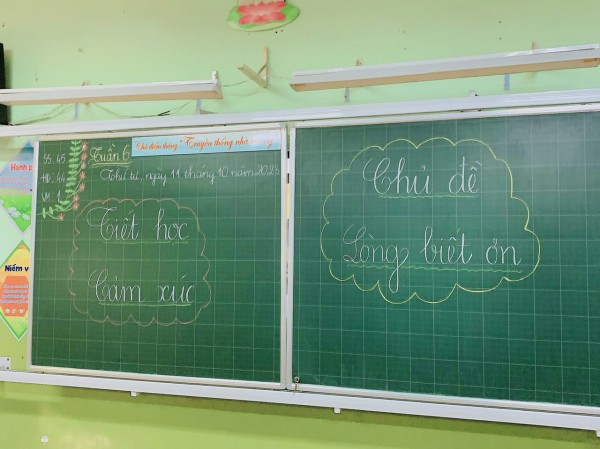 SS: 45
HD: 44
VM: 1
Tuần 6
Chủ điểm tháng "Truyền thống nhà
Thứ tư, ngày 11 tháng 10 năm 2023
Tiết học
Cảm xúc
Chủ đề
Lòng biết ơn
Hạnh p
Niềm v